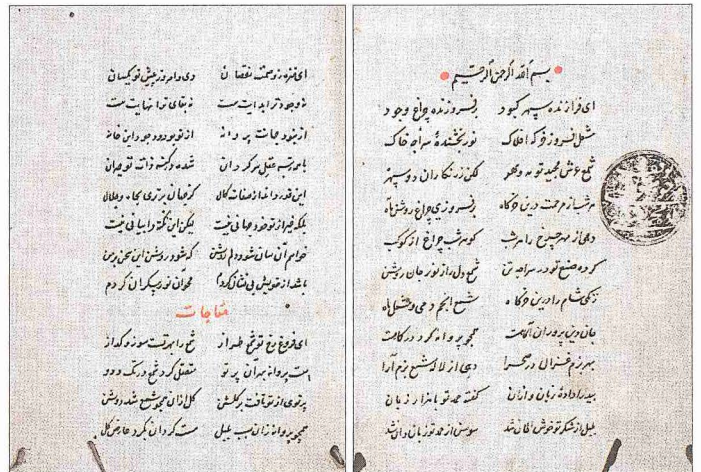 بسم الله الرحمن الرحیم
ای فرازنده سپهر کبود برفروزنده چراغ وجود
مشعل افروز خرگه افلاک نوربخشنده سراچه خاک
شمع عرش مجید تو مه و مهر لکن زرنگار آن دو سپهر
هر شب از رحمت درین خرگاه برفروزی چراغ روشن ماه
دهی از مهر چرخ را هر شب کوهر شب چراغ از کوکب
کرده صنع تو در سراچه تن شمع دل را ز نور جان روشن
زنگی شام را درین خرگاه شمع انجم دهی و مشعل ماه
جان دین پروران آگاهت همچو پروانه گرد درگاهت
بهر بزم غزال در صحرا دهی از لاله شمع بزم آرا
بید را داده زبان و از آن گفته حمد تو با هزار زبان
بلبل از شکر تو خوش الحان شد سوسن از حمد تو زبان دان شد
ای منزه ز وصمت نقصان دی و امروز پیش تو یکسان
نه وجود ترا بدایت هست نه بقای ترا نهایت هست
پروانه از تو بود وجود این خانه
عقل سرگردان شده در کنه ذات تو حیران
این قدر داند از صفات کمال کز جهان برتری بجاه و جلال
بلکه غیر از تو خود جهانی نیست لیکن این نکته را بیانی نیست
خواهم آن سان شود دلم روشن که شود روشن این سخن بر من
باشد از خویش بی نشان گردم محو آن نور بیکران گردم
مناجات
ای فروغ رخ تو شمع طراز شمع را مهرت سوز و گداز
هست پروانه پرتو شمع
پرتوی از تو تافت بر گلشن گل از آن همچو شمع شد روشن
همچو پروانه زان سبب بلبل مست گردان بگرد عارض گل